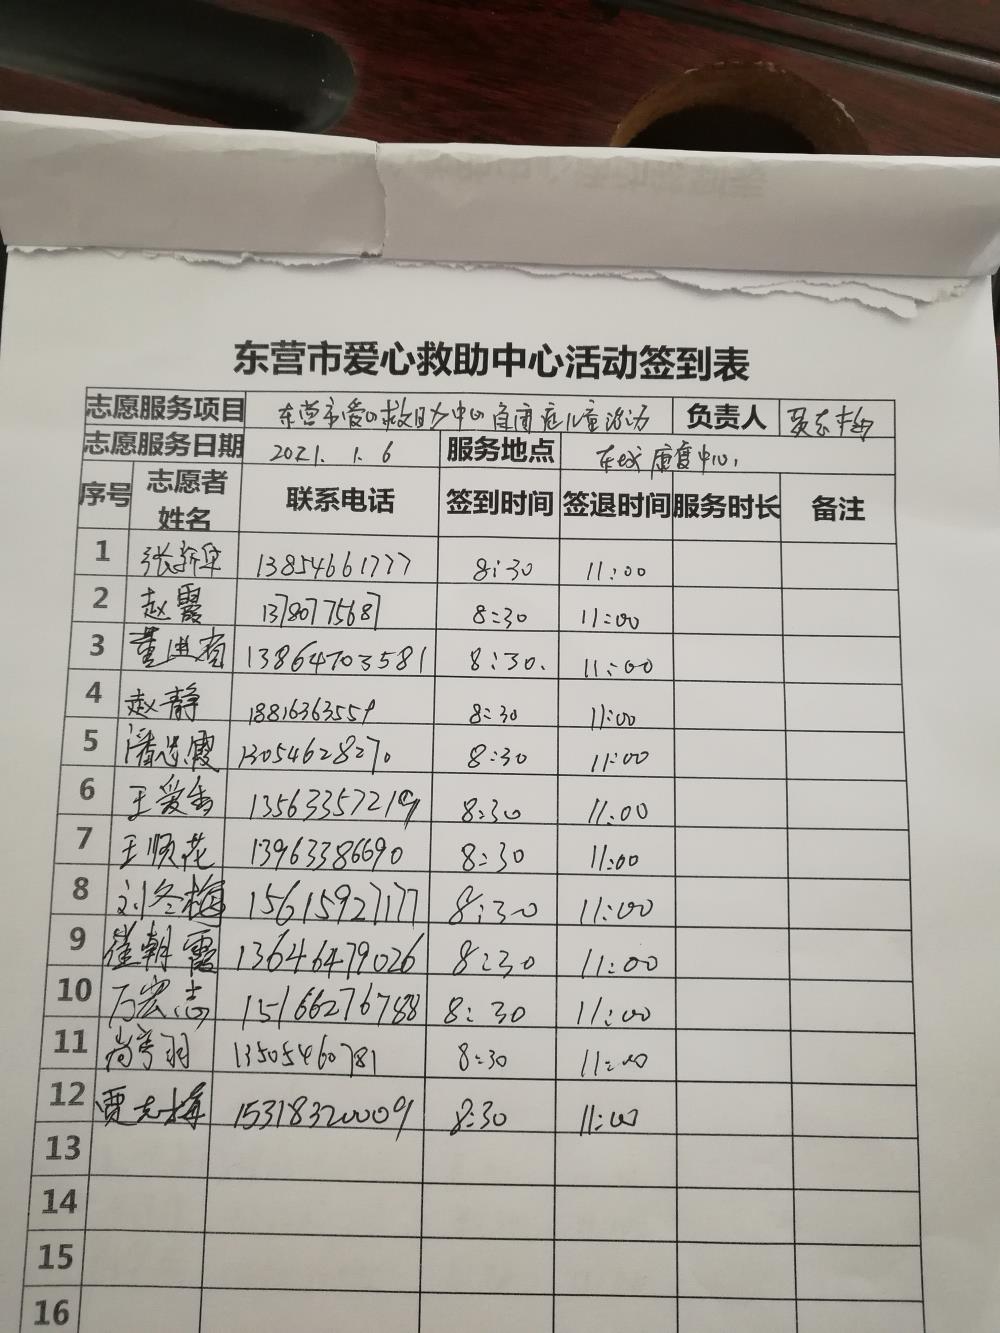 东营市爱心救助中心活动签到表
志愿服务项目 东营市爱心救助中心自闭症儿童活动 负责人
志愿服务日期 2021.1.6 服务地点 东城康复中心
序号 志愿者姓名 联系电话 签到时间 签退时间 服务时长 备注
1 张新华 13854661777 8:30 11:00
2 赵霞 13780775687 8:30 11:00
3 董 13864703581 8:30. 11:00
4 赵静 18816363559 8:30 11:00
5 潘忠霞 13054628270 8:30 11:00
6 王爱香 13563357219 8:30 11:00
7 王顺花 13963386690 8:30 11:00
8 刘冬梅 15615927177 8:30 11:00
9 崔朝霞 13646479026 8:30 11:00
10 万宏志 15166276788 8:30 11:00
11 尚 羽 13505460781 8:30 11:00
12 贾志梅 15318320009 8:30 11:00
13
14
15
16